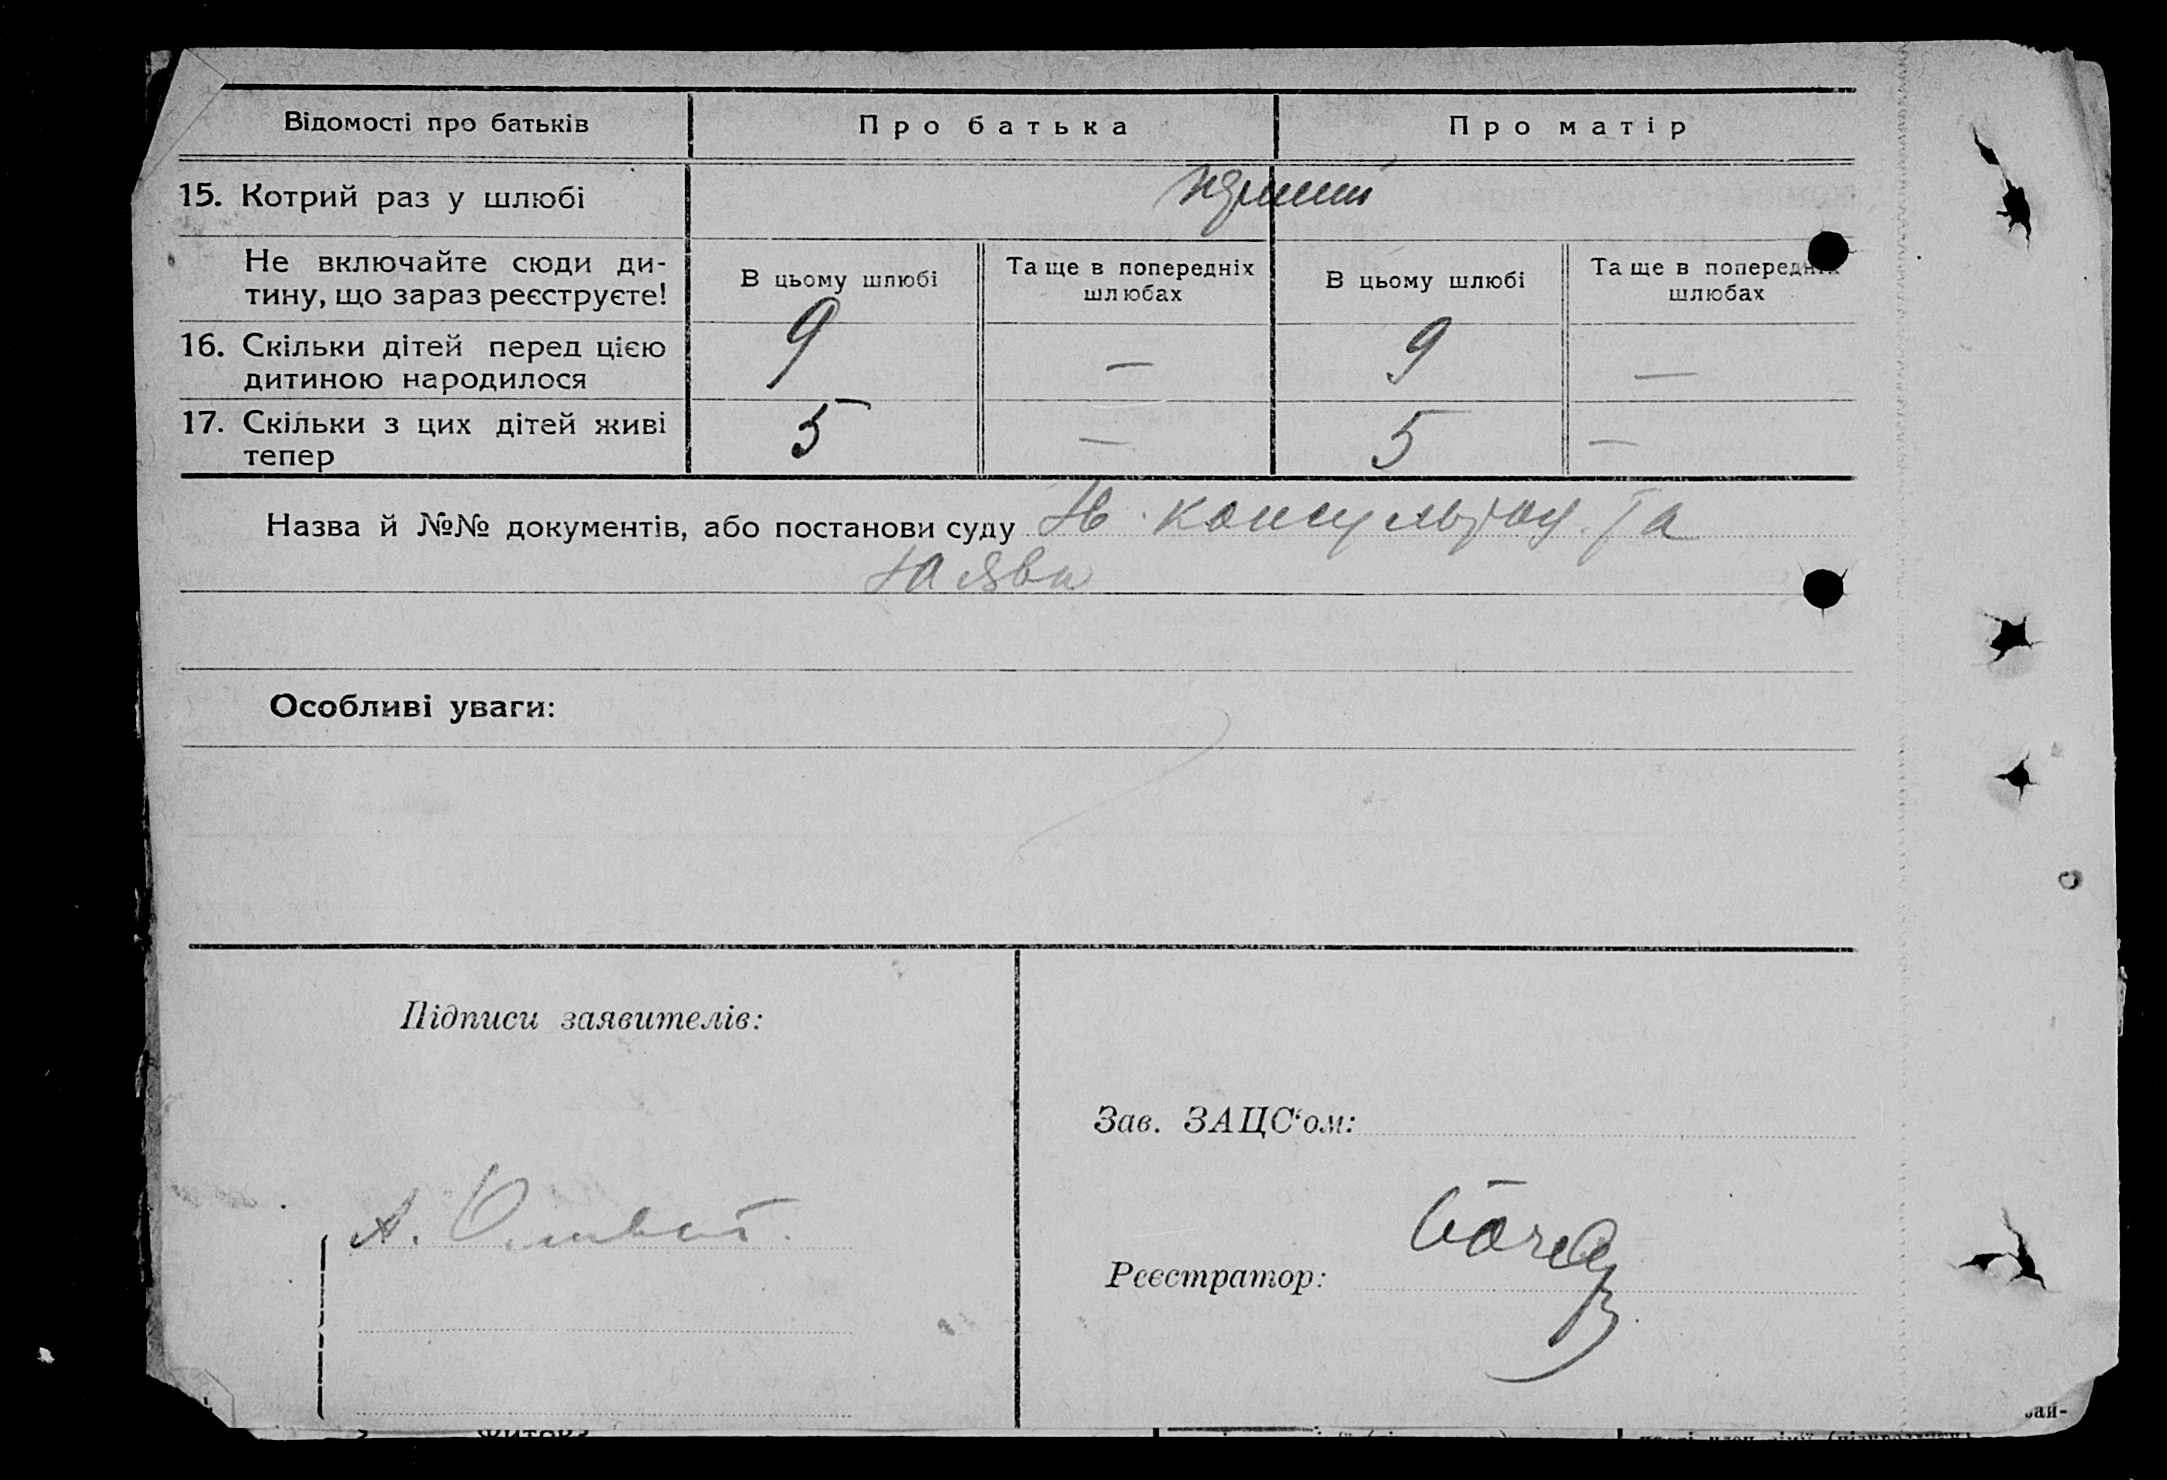 Відомості про батьків
Про батька
Про матір
15. Котрий раз у шлюбі
перший
Не включайте сюди ди-
тину, що зараз реєструєте!
В цьому шлюбі
Та ще в попередніх
шлюбах
В цьому шлюбі
Та ще в попередніх
шлюбах
16. Скільки дітей перед цією
дитиною народилося
9 — 9 —
17. Скільки з цих дітей живі
тепер
5 — 5 —
Назва й №№ документів, або постанови суду консультац. та
заява
Особливі уваги:
Підписи заявителів:
А.
Зав. ЗАЦС‘ом:
Реєстратор: